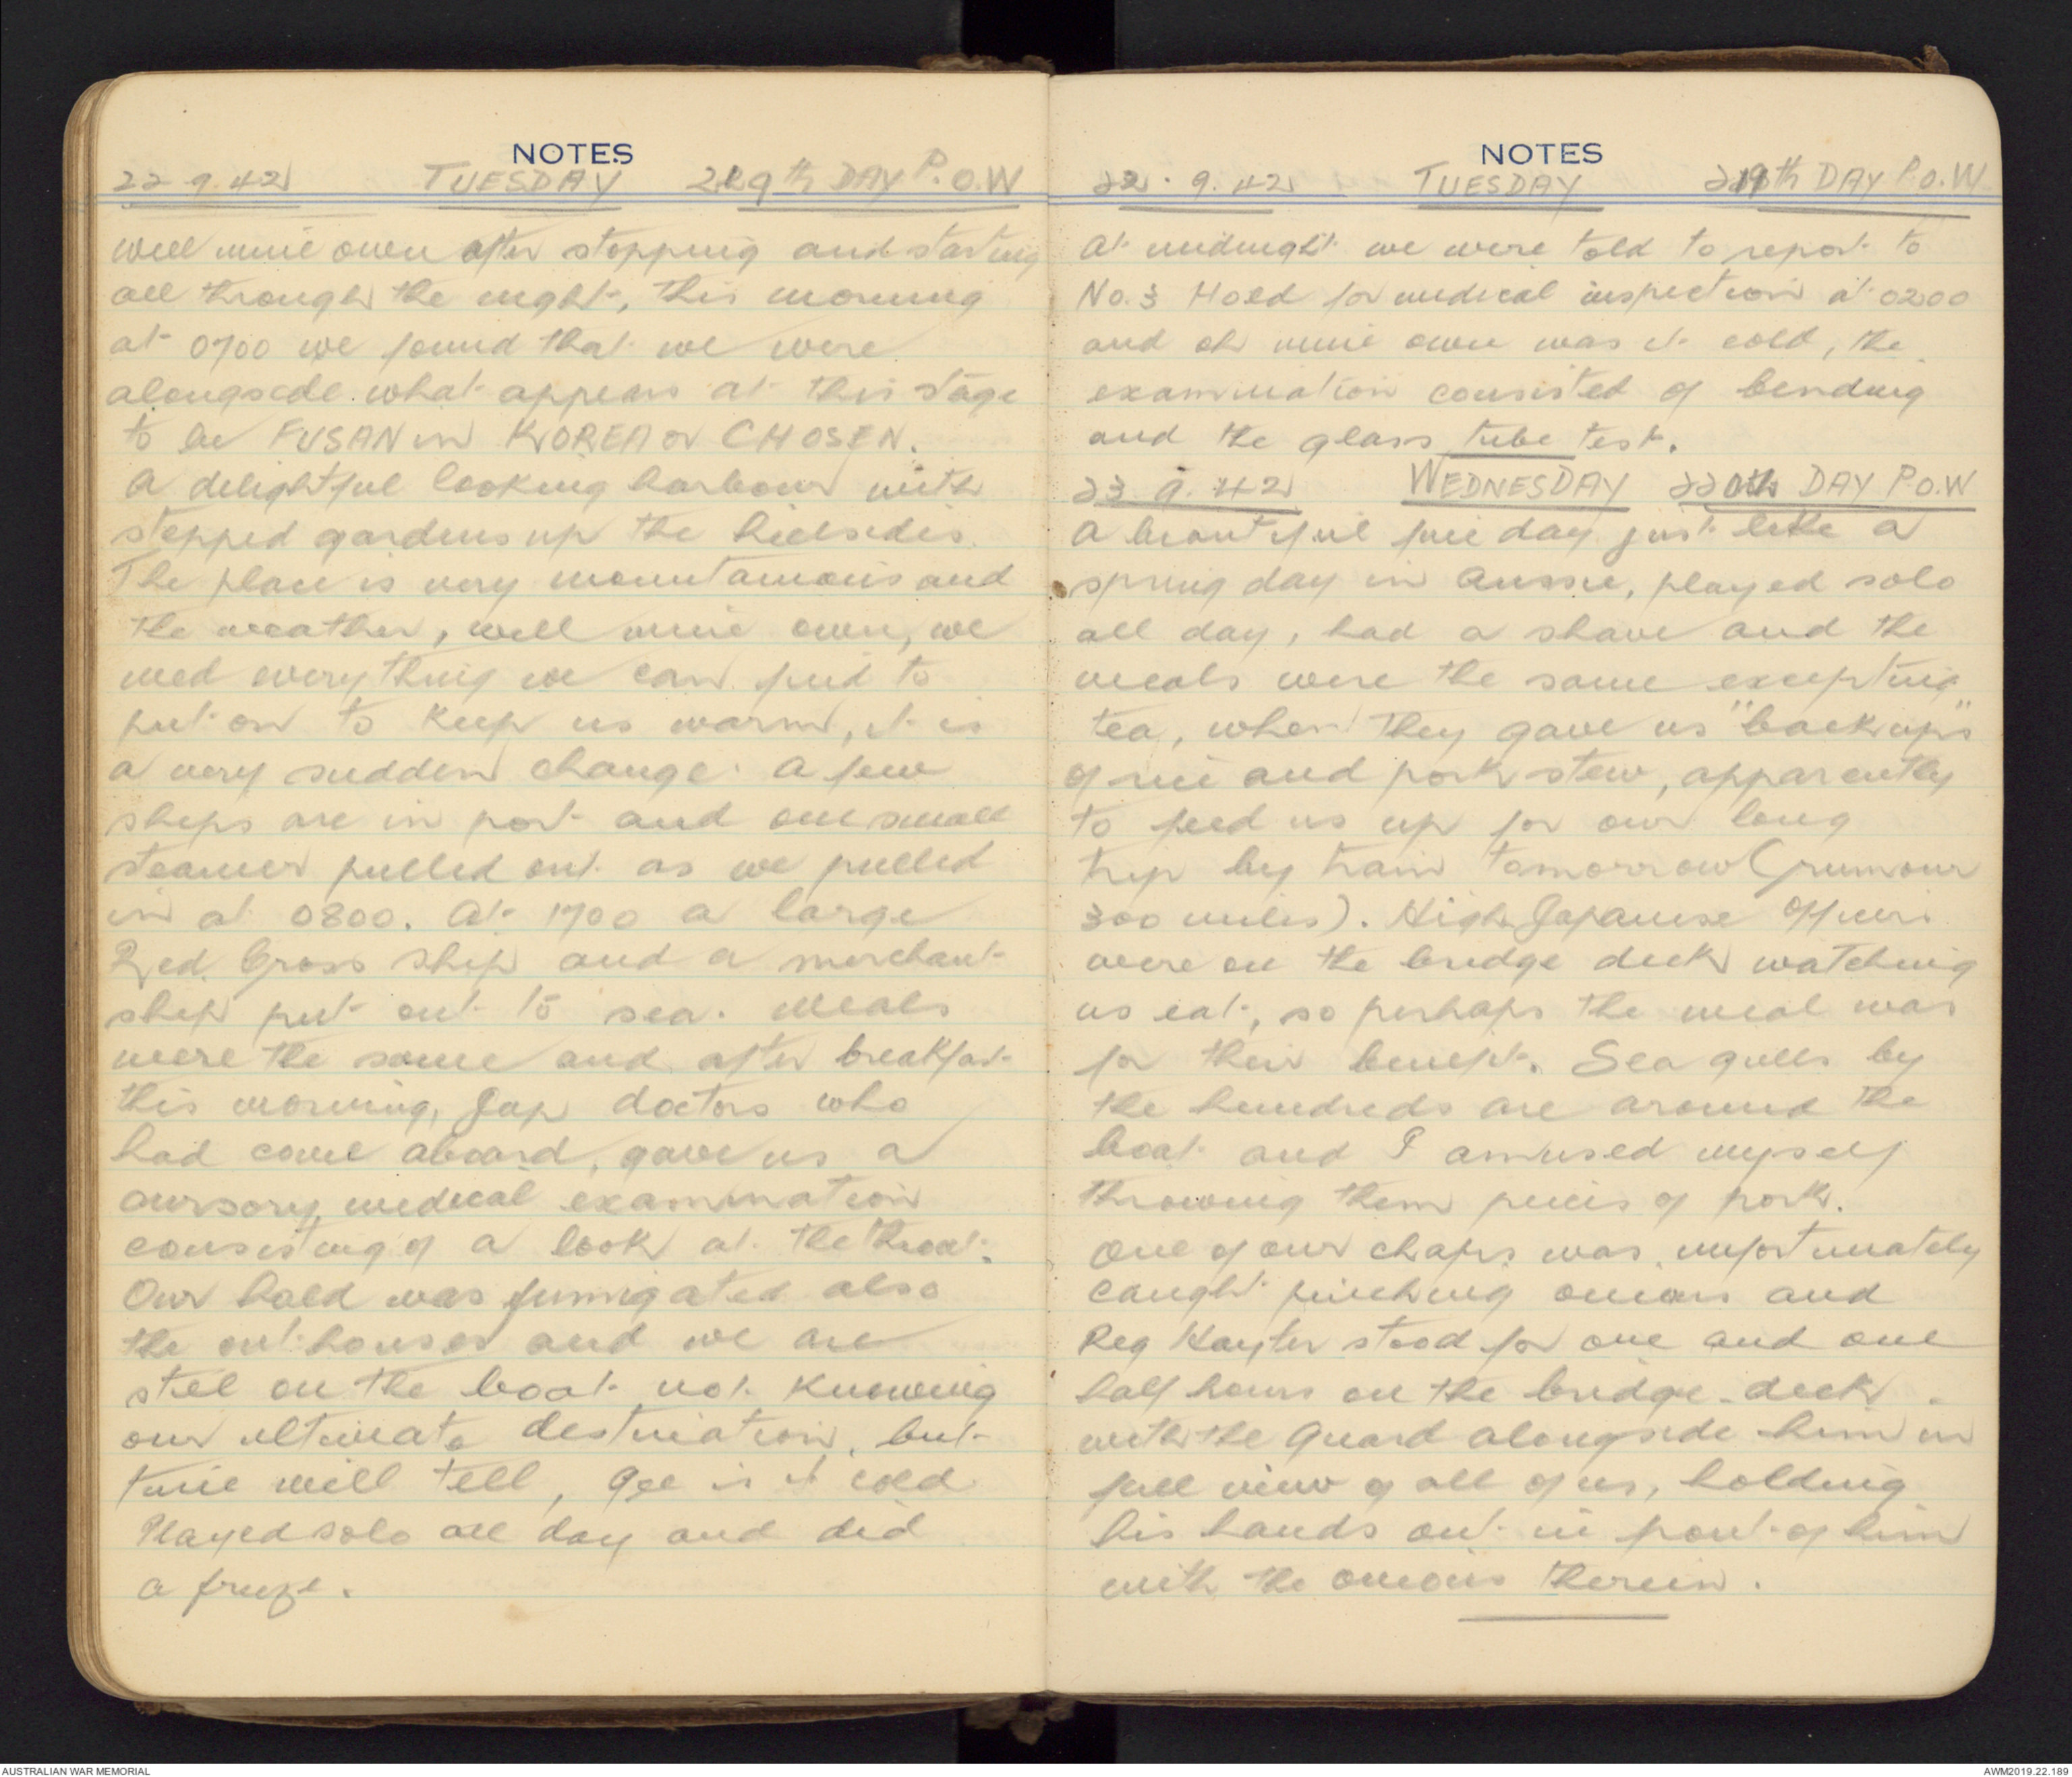 NOTES
22 9.42 TUESDAY 219th DAY P.O.W
Well mine own after stopping and starting
all through the night, this morning
at 0700 we found that we were
alongside what appears at this stage
to be FUSAN in KOREA or CHOSEN.
A delightful looking harbour with
stepped gardens up the hillsides.
The place is very mountainous and
the weather, well mine own, we
need everything we can find to
put on to keep us warm, it is
a very sudden change. A few
ships are in port and one small
steamer pulled out as we pulled
in at 0800. At 1700 a large
Red Cross ship and a merchant
ship put out to sea. Meals
were the same and after breakfast
this morning, Jap doctors who
had come aboard, gave us a
cursory medical examination
consisting of a look at the throat.
Our hold was fumigated also
the out houses and we are
still on the boat not knowing
our ultimate destination, but
time will tell, Gee is it cold
Played solo all day and did
a freeze.
NOTES
22.9.42 TUESDAY 219th DAY P.O.W
At midnight we were told to report to
No.3 Hold for medical inspection at 0200
and oh mine own was it cold, the
examination consisted of bending
and the glass tube test.
23 9.42 WEDNESDAY 220th DAY P.O.W
A beautiful fine day just like a
spring day in Aussie, played solo
all day, had a shave and the
meals were the same excepting
tea, when they gave us "back ups"
of rice and pork stew, apparently
to feed us up for our long
trip by train tomorrow (rumour
300 miles). High Japanese officers
were on the bridge deck watching
us eat, so perhaps the meal was
for their benefit. Sea gulls by
the hundreds are around the
boat and I amused myself
throwing them pieces of pork.
One of our chaps was unfortunately
caught pinching onions and
Reg Hayter stood for one and one
half hours on the bridge-deck
with the guard alongside him in
full view of all of us, holding
his hands out in front of him
with the onions therein.
AUSTRALIAN WAR MEMORIAL
AWM2019.22.189